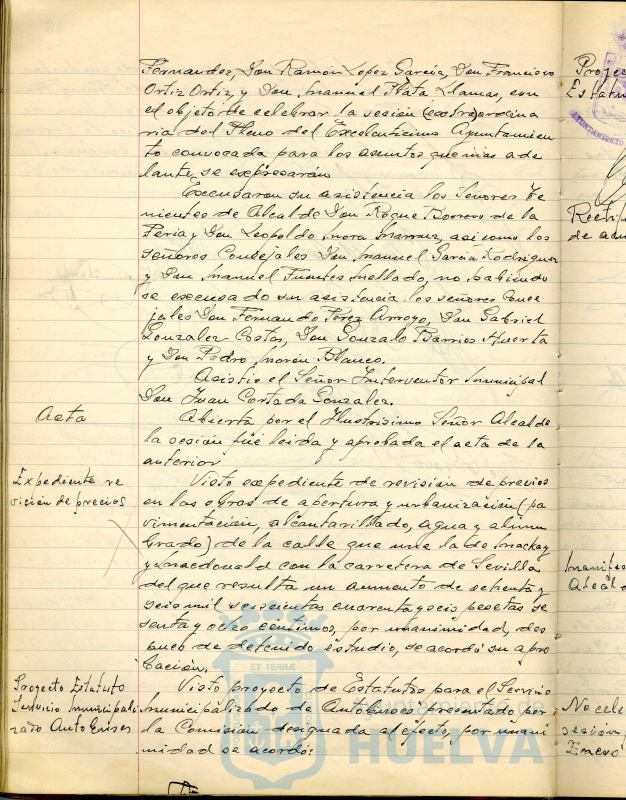 Fernandez, Don Ramón Lopez Garcia, Don Francisco
Ortiz Ortiz y Don Manuel Plata Llamas, con
el objeto de celebrar la sesión (extra)ordina
ria del Pleno del Excelentisimo Ayuntamien
to convocada para los asuntos que mas ade
lante se expresarán
Excusaron su asistencia los Señores Te
nientes de Alcalde Don Roque Borrero de la
Feria y Don Leopoldo Mora, asi como los
señores Concejales Don Manuel Garcia Rodriguez
y Don Manuel Fuentes Mollado, no habiendo
se excusado su asistencia los señores Conce
jales Don Fernando Perez Arroyo, Don Gabriel
Gonzalez Costas, Don Gonzalo Barrios Huerta
y Don Pedro Morón Blanco.
Asistio el Señor Interventor Municipal
Don Juan Cortada Gonzalez.
Acta
Abierta por el Ilustrisimo Señor Alcalde
la sesión fué leida y aprobada el acta de la
anterior
Expediente re
visión de precios
Visto expediente de revisión de precios
en las obras de apertura y urbanización (pa
vimentación, alcantarillado, agua y alum
brado) de la calle que une la de Mackay
y Macdonald con la carretera de Sevilla
del que resulta un aumento de setenta y
seis mil seiscientas cuarenta y seis pesetas se
senta y ocho centimos, por unanimidad, des
pues de detenido estudio, se acordó su apro
bación.
Proyecto Estatuto
Servicio Municipali
zado Autobuses
Visto proyecto de Estatutos para el Servicio
Municipalizado de Autobuses presentado por
la Comisión designada al efecto, por unani
midad se acordó:
Proyec
Estatu
AYUNTAMIENTO
Rectifi
de
Manifes
Alcal
No cele
sesión
Enero
ET TERRÆ
Ayuntamiento de
HUELVA